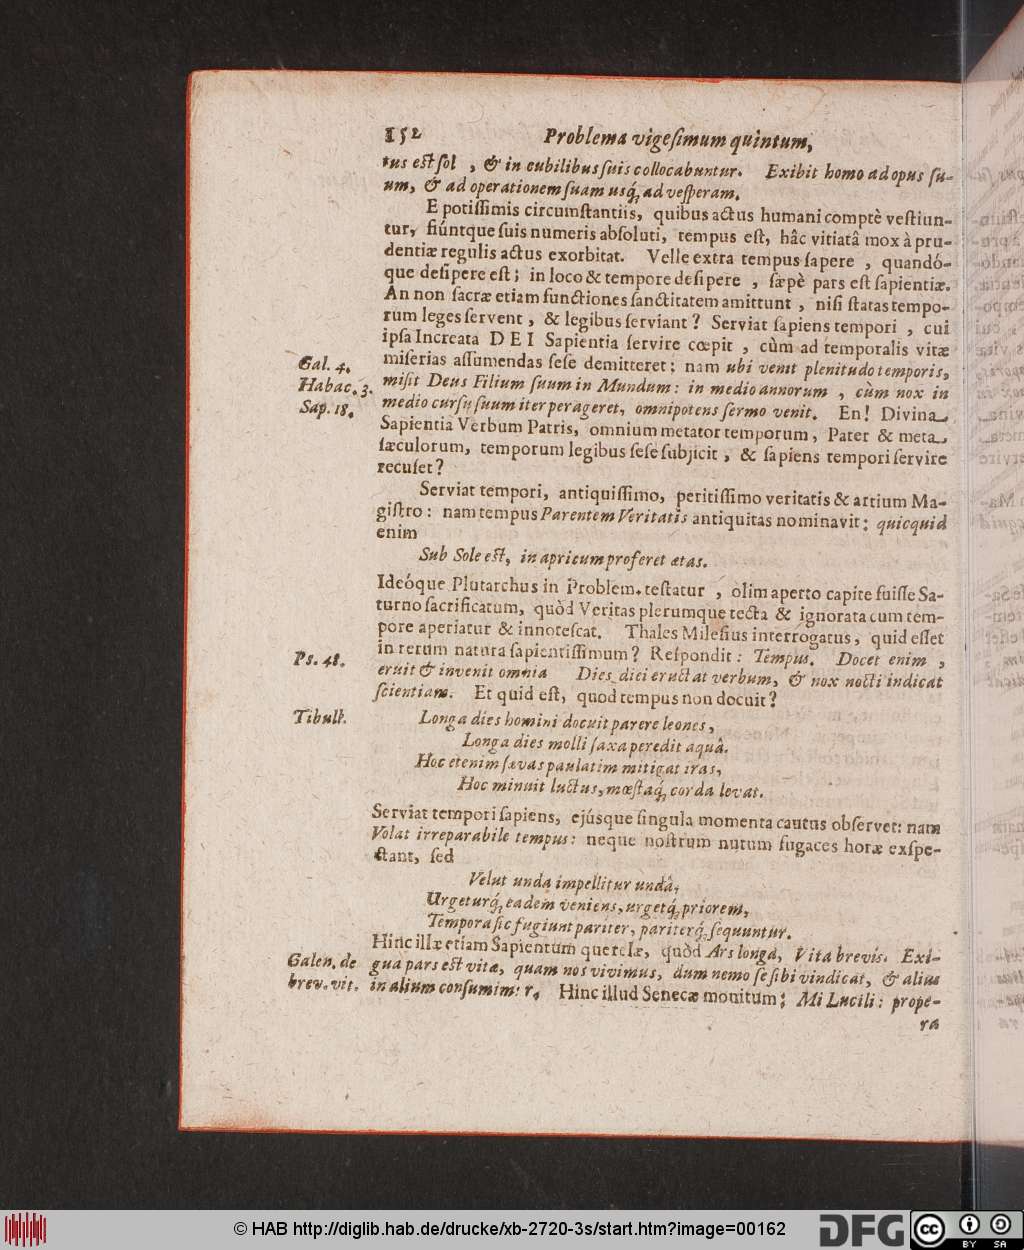 152 Problema vigesimum quintum,
tus est sol , & in cubilibus suis collocabuntur. Exibit homo ad opus su-
um, & ad operationem suam usq́; ad vesperam.
E potissimis circumstantiis, quibus actus humani comptè vestiun-
tur, fiúntque suis numeris absoluti, tempus est, hâc vitiatâ mox à pru-
dentiæ regulis actus exorbitat. Velle extra tempus sapere , quandó-
que desipere est; in loco & tempore desipere , sæpè pars est sapientiæ.
An non sacræ etiam functiones sanctitatem amittunt , nisi statas tempo-
rum leges servent , & legibus serviant? Serviat sapiens tempori , cui
ipsa Increata DEI Sapientia servire cœpit , cùm ad temporalis vitæ
miserias assumendas sese demitteret; nam ubi venit plenitudo temporis,
Gal. 4.
misit Deus Filium suum in Mundum: in medio annorum , cùm nox in
Habac. 3.
medio cursu suum iter perageret, omnipotens sermo venit. En! Divina
Sap. 18.
Sapientia Verbum Patris, omnium metator temporum, Pater & meta
sæculorum, temporum legibus sese subjicit , & sapiens tempori servire
recuset?
Serviat tempori, antiquissimo, peritissimo veritatis & artium Ma-
gistro: nam tempus Parentem Veritatis antiquitas nominavit: quicquid
enim
Sub Sole est, in apricum proferet ætas.
Ideóque Plutarchus in Problem. testatur , olim aperto capite fuisse Sa-
turno sacrificatum, quòd Veritas plerumque tecta & ignorata cum tem-
pore aperiatur & innotescat. Thales Milesius interrogatus, quid esset
in rerum natura sapientissimum? Respondit: Tempus. Docet enim ,
eruit & invenit omnia Dies diei eructat verbum, & nox nocti indicat
Ps. 48.
scientiam. Et quid est, quod tempus non docuit?
Tibull.
Longa dies homini docuit parere leones,
Longa dies molli saxa peredit aquâ.
Hoc etenim sævas paulatim mitigat iras,
Hoc minuit luctus, mœstaq́; corda levat.
Serviat tempori sapiens, ejúsque singula momenta cautus observet: nam
Volat irreparabile tempus: neque nostrum nutum fugaces horæ exspe-
ctant, sed
Velut unda impellitur undâ,
Urgeturq́; eadem veniens, urgetq́; priorem,
Tempora sic fugiunt pariter, pariterq́; sequuntur.
Hinc illæ etiam Sapientum querelæ, quòd Ars longa, Vita brevis. Exi-
Galen. de
gua pars est vitæ, quam nos vivimus, dum nemo se sibi vindicat, & alius
brev. vit.
in alium consumimur. Hinc illud Senecæ monitum: Mi Lucili: prope-
ra
© HAB http://diglib.hab.de/drucke/xb-2720-3s/start.htm?image=00162
DFG
cc
BY SA